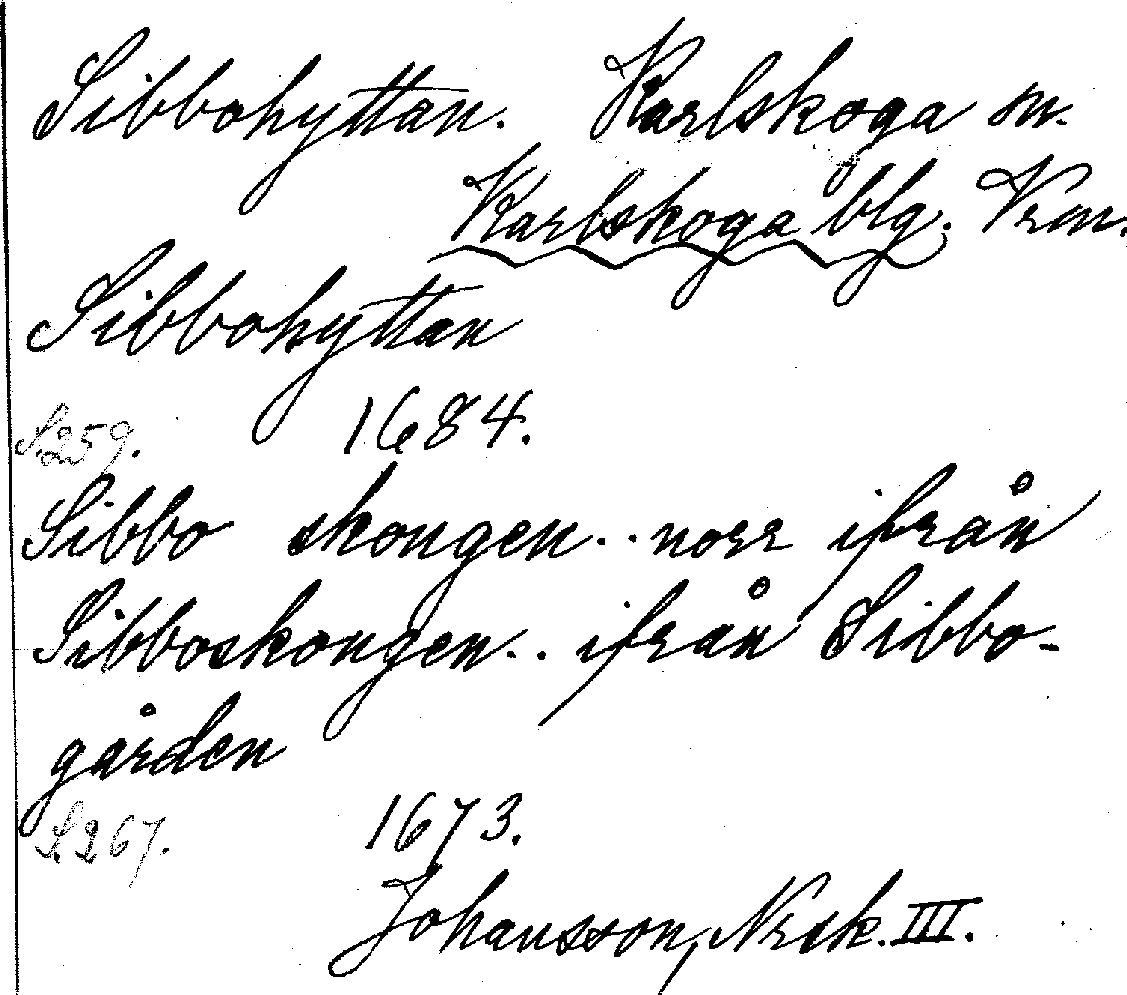 Sibbohyttan. Karlskoga sn.
Karlskoga blg. Vrm.
Sibbohyttan
S. 259. 1684.
Sibbo skongen.. norr ifrån
Sibboskongen.. ifrån Sibbo-
gården
S. 267. 1673.
Johansson, Nrsk. III.